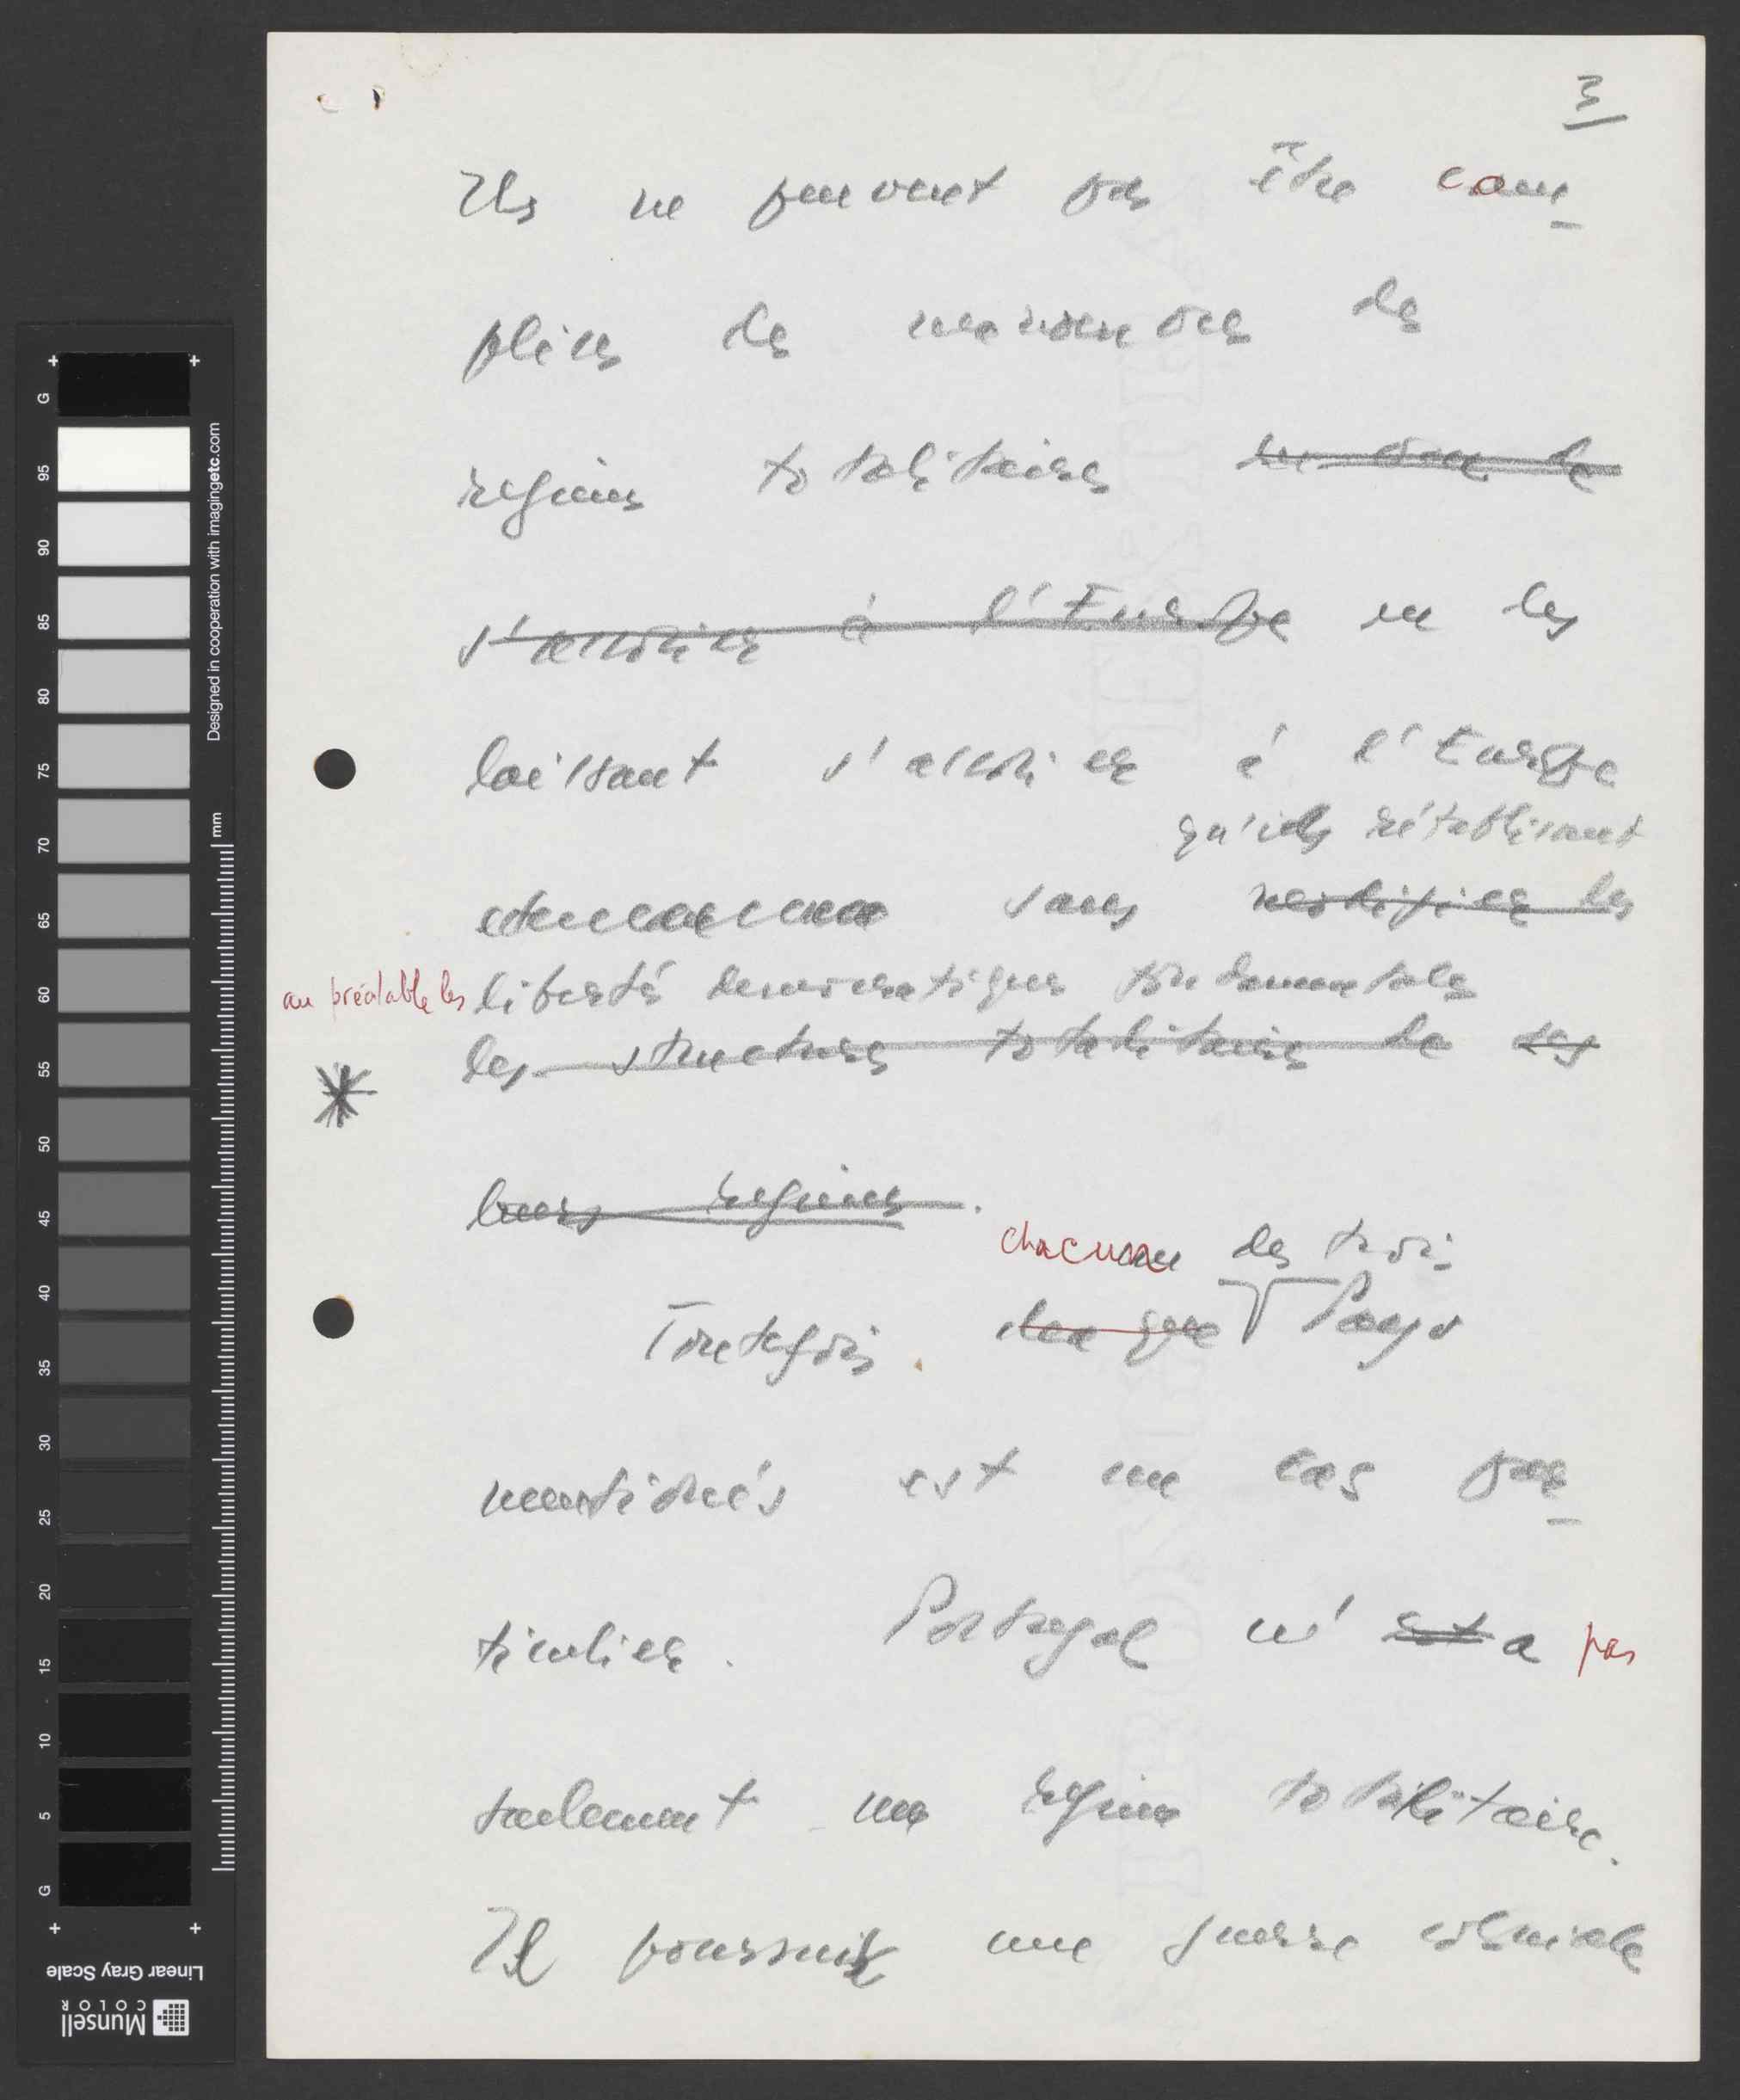 3
Ils ne peuvent pas être com-
plices des manœuvres des
regimes totalitaires en vue de
s'associer à l'Europe en les
laissant s'associer à l'Europe
qu'ils rétablissent
sans modifier les
au préalable les libertés democratiques fondamentales
les structures totalitaires de ses
leurs regimes.
chacun des trois
Toutefois. chaque Pays
mentionés est un cas par-
ticulier. Portugal n' est a pas
seulement un regime totalitaire.
Il poursuit une guerre coloniale
G
95
90
85
80
75
70
65
60
55
50
45
40
35
30
25
20
15
10
5
G
Designed in cooperation with imagingetc.com
mm
Linear Gray Scale
Munsell
COLOR